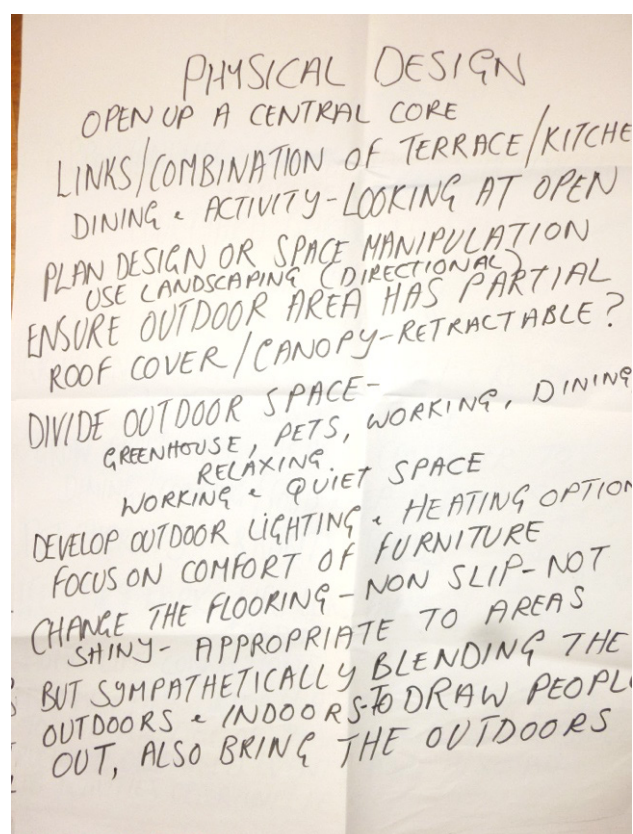 PHYSICAL DESIGN
OPEN UP A CENTRAL CORE
LINKS/COMBINATION OF TERRACE/KITCHE
DINING & ACTIVITY-LOOKING AT OPEN
PLAN DESIGN OR SPACE MANIPULATION
USE LANDSCAPING (DIRECTIONAL)
ENSURE OUTDOOR AREA HAS PARTIAL
ROOF COVER/CANOPY-RETRACTABLE?
DIVIDE OUTDOOR SPACE-
GREENHOUSE, PETS, WORKING, DINING
RELAXING
WORKING & QUIET SPACE
DEVELOP OUTDOOR LIGHTING & HEATING OPTION
FOCUS ON COMFORT OF FURNITURE
CHANGE THE FLOORING-NON SLIP-NOT
SHINY- APPROPRIATE TO AREAS
BUT SYMPATHETICALLY BLENDING THE
OUTDOORS & INDOORS-TO DRAW PEOPL
OUT, ALSO BRING THE OUTDOORS